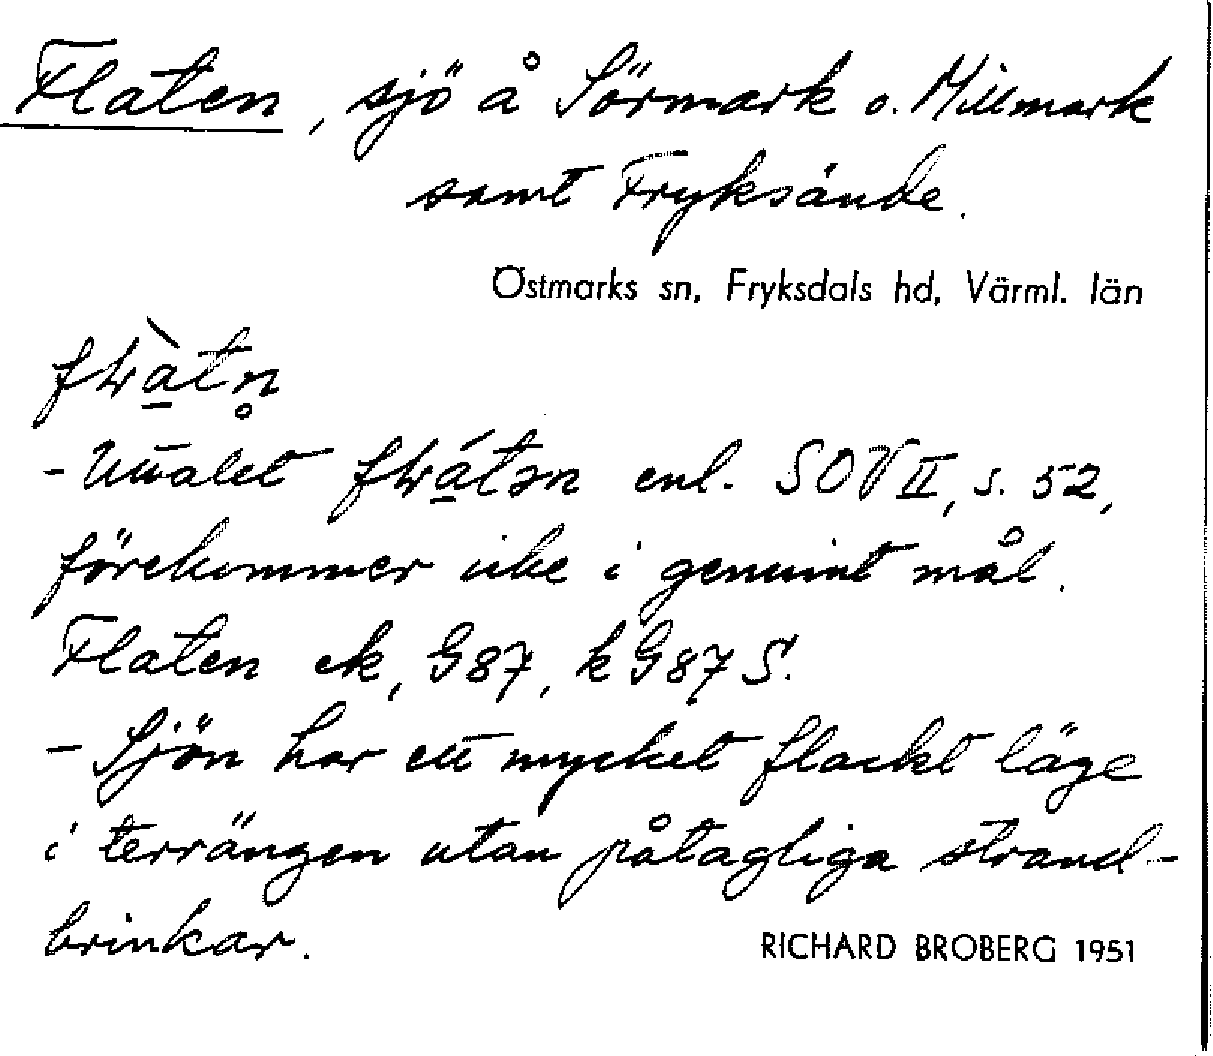 Flaten, sjö å Sörmark o. Millmark
samt Fryksände.
Östmarks sn, Fryksdals hd, Värml. län
fɫàtn̥
- Uttalet fɫátən enl. SOV II, s. 52,
förekommer icke i genuint mål.
Flaten ek, G87, k G87 S.
- Sjön har ett mycket flackt läge
i terrängen utan påtagliga strand-
brinkar.
RICHARD BROBERG 1951